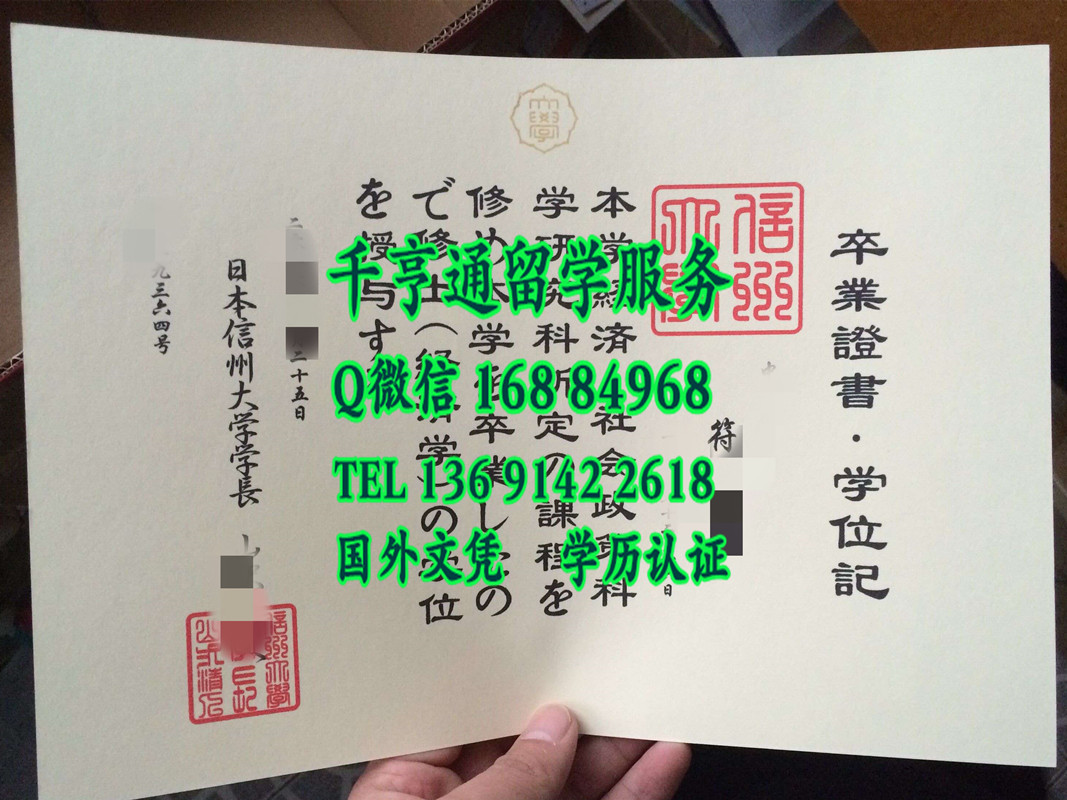 卒業證書・学位記
信州大學
符
日
本学経済 社会政策科
学研究科所定の課程を
修め本学を卒業したの
で修士(経済学)の学位
を授与す
二十五日
日本信州大学学長
九三六四号
千亨通留学服务
Q微信 168 84968
TEL 136 9142 2618
国外文凭 学历认证